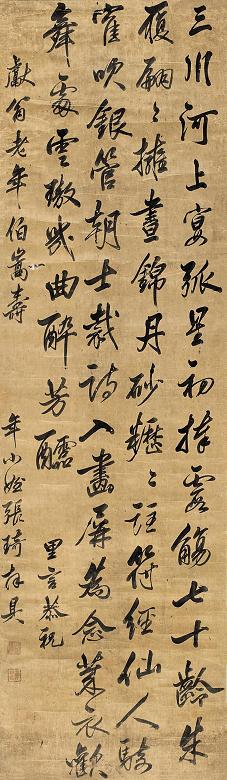 三川河上宴弧星初捧霞觴七十齡朱
履翩〻擁晝錦丹砂歷〻註符經仙人騎
寉吹銀管朝士裁詩入畫屏為念萊衣歡
舞處雲璈幾曲醉芳醽 里言恭祝
獻翁老年伯嵩壽 年小姪張琦拜具